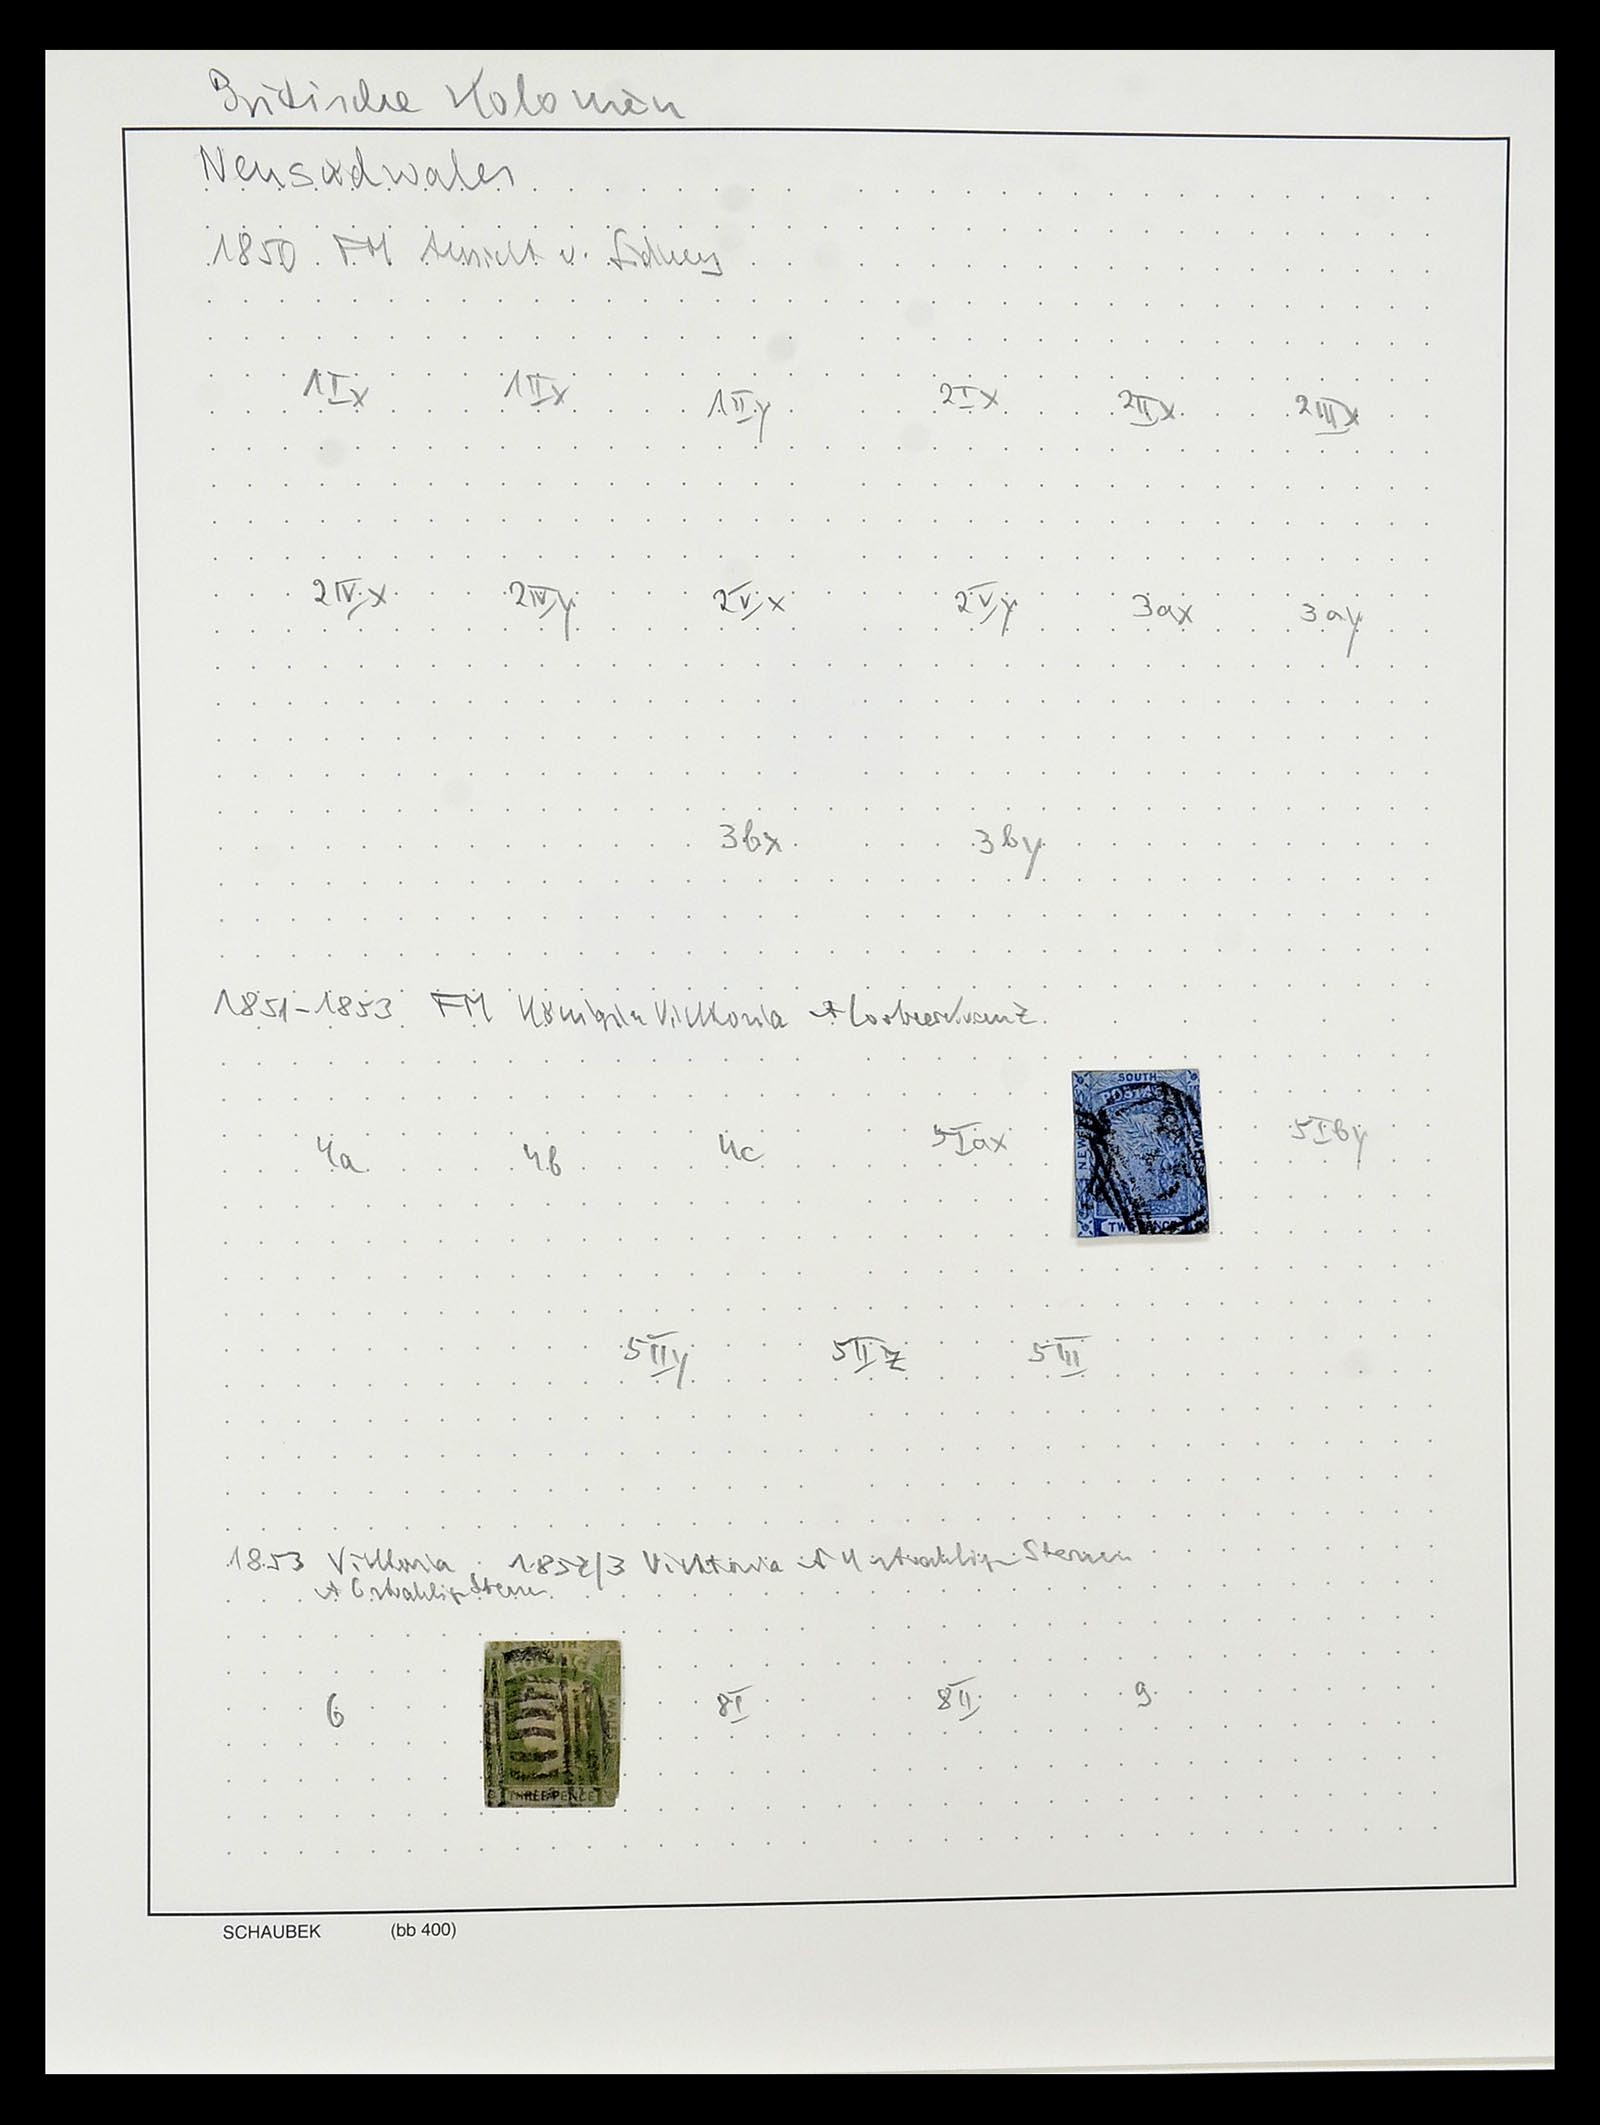 Britische Kolonien
Neusüdwales
1850 FM Ansicht v. Sidney
1Ix 1IIx 1IIy 2Ix 2IIx 2IIIx
2IVx 2IVy 2Vx 2Vy 3ax 3ay
3bx 3by
1851-1853 FM Königin Viktoria + Lorbeerkranz
SOUTH
POSTAGE
NEW
TWO PENCE
4a 4b 4c 5Iax 5Iby
5IIy 5IIz 5III
1853 Viktoria 1852/3 Viktoria + 4 strahlige Sternen
+ 6 strahlig Sternen
SOUTH
WALES
THREE PENCE
6 8I 8II 9
SCHAUBEK (bb 400)